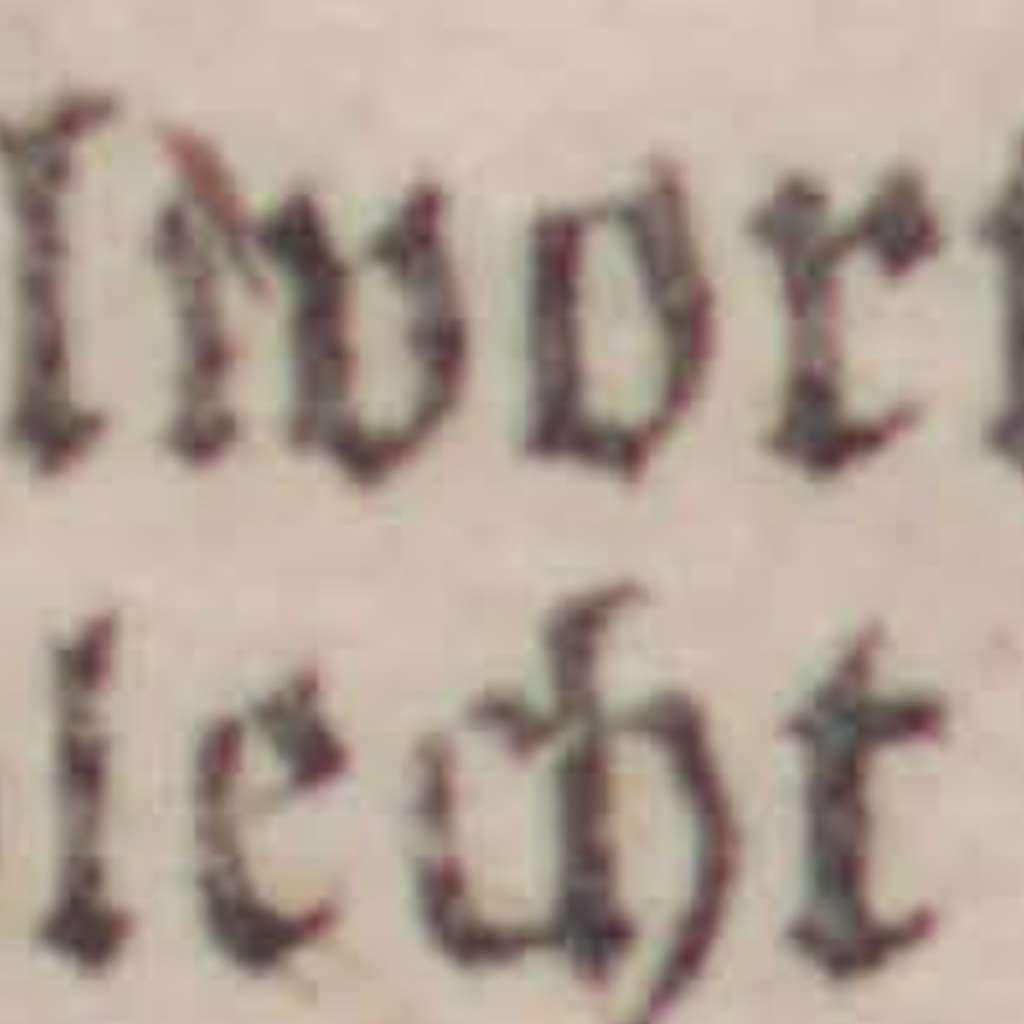 lwort
lecht